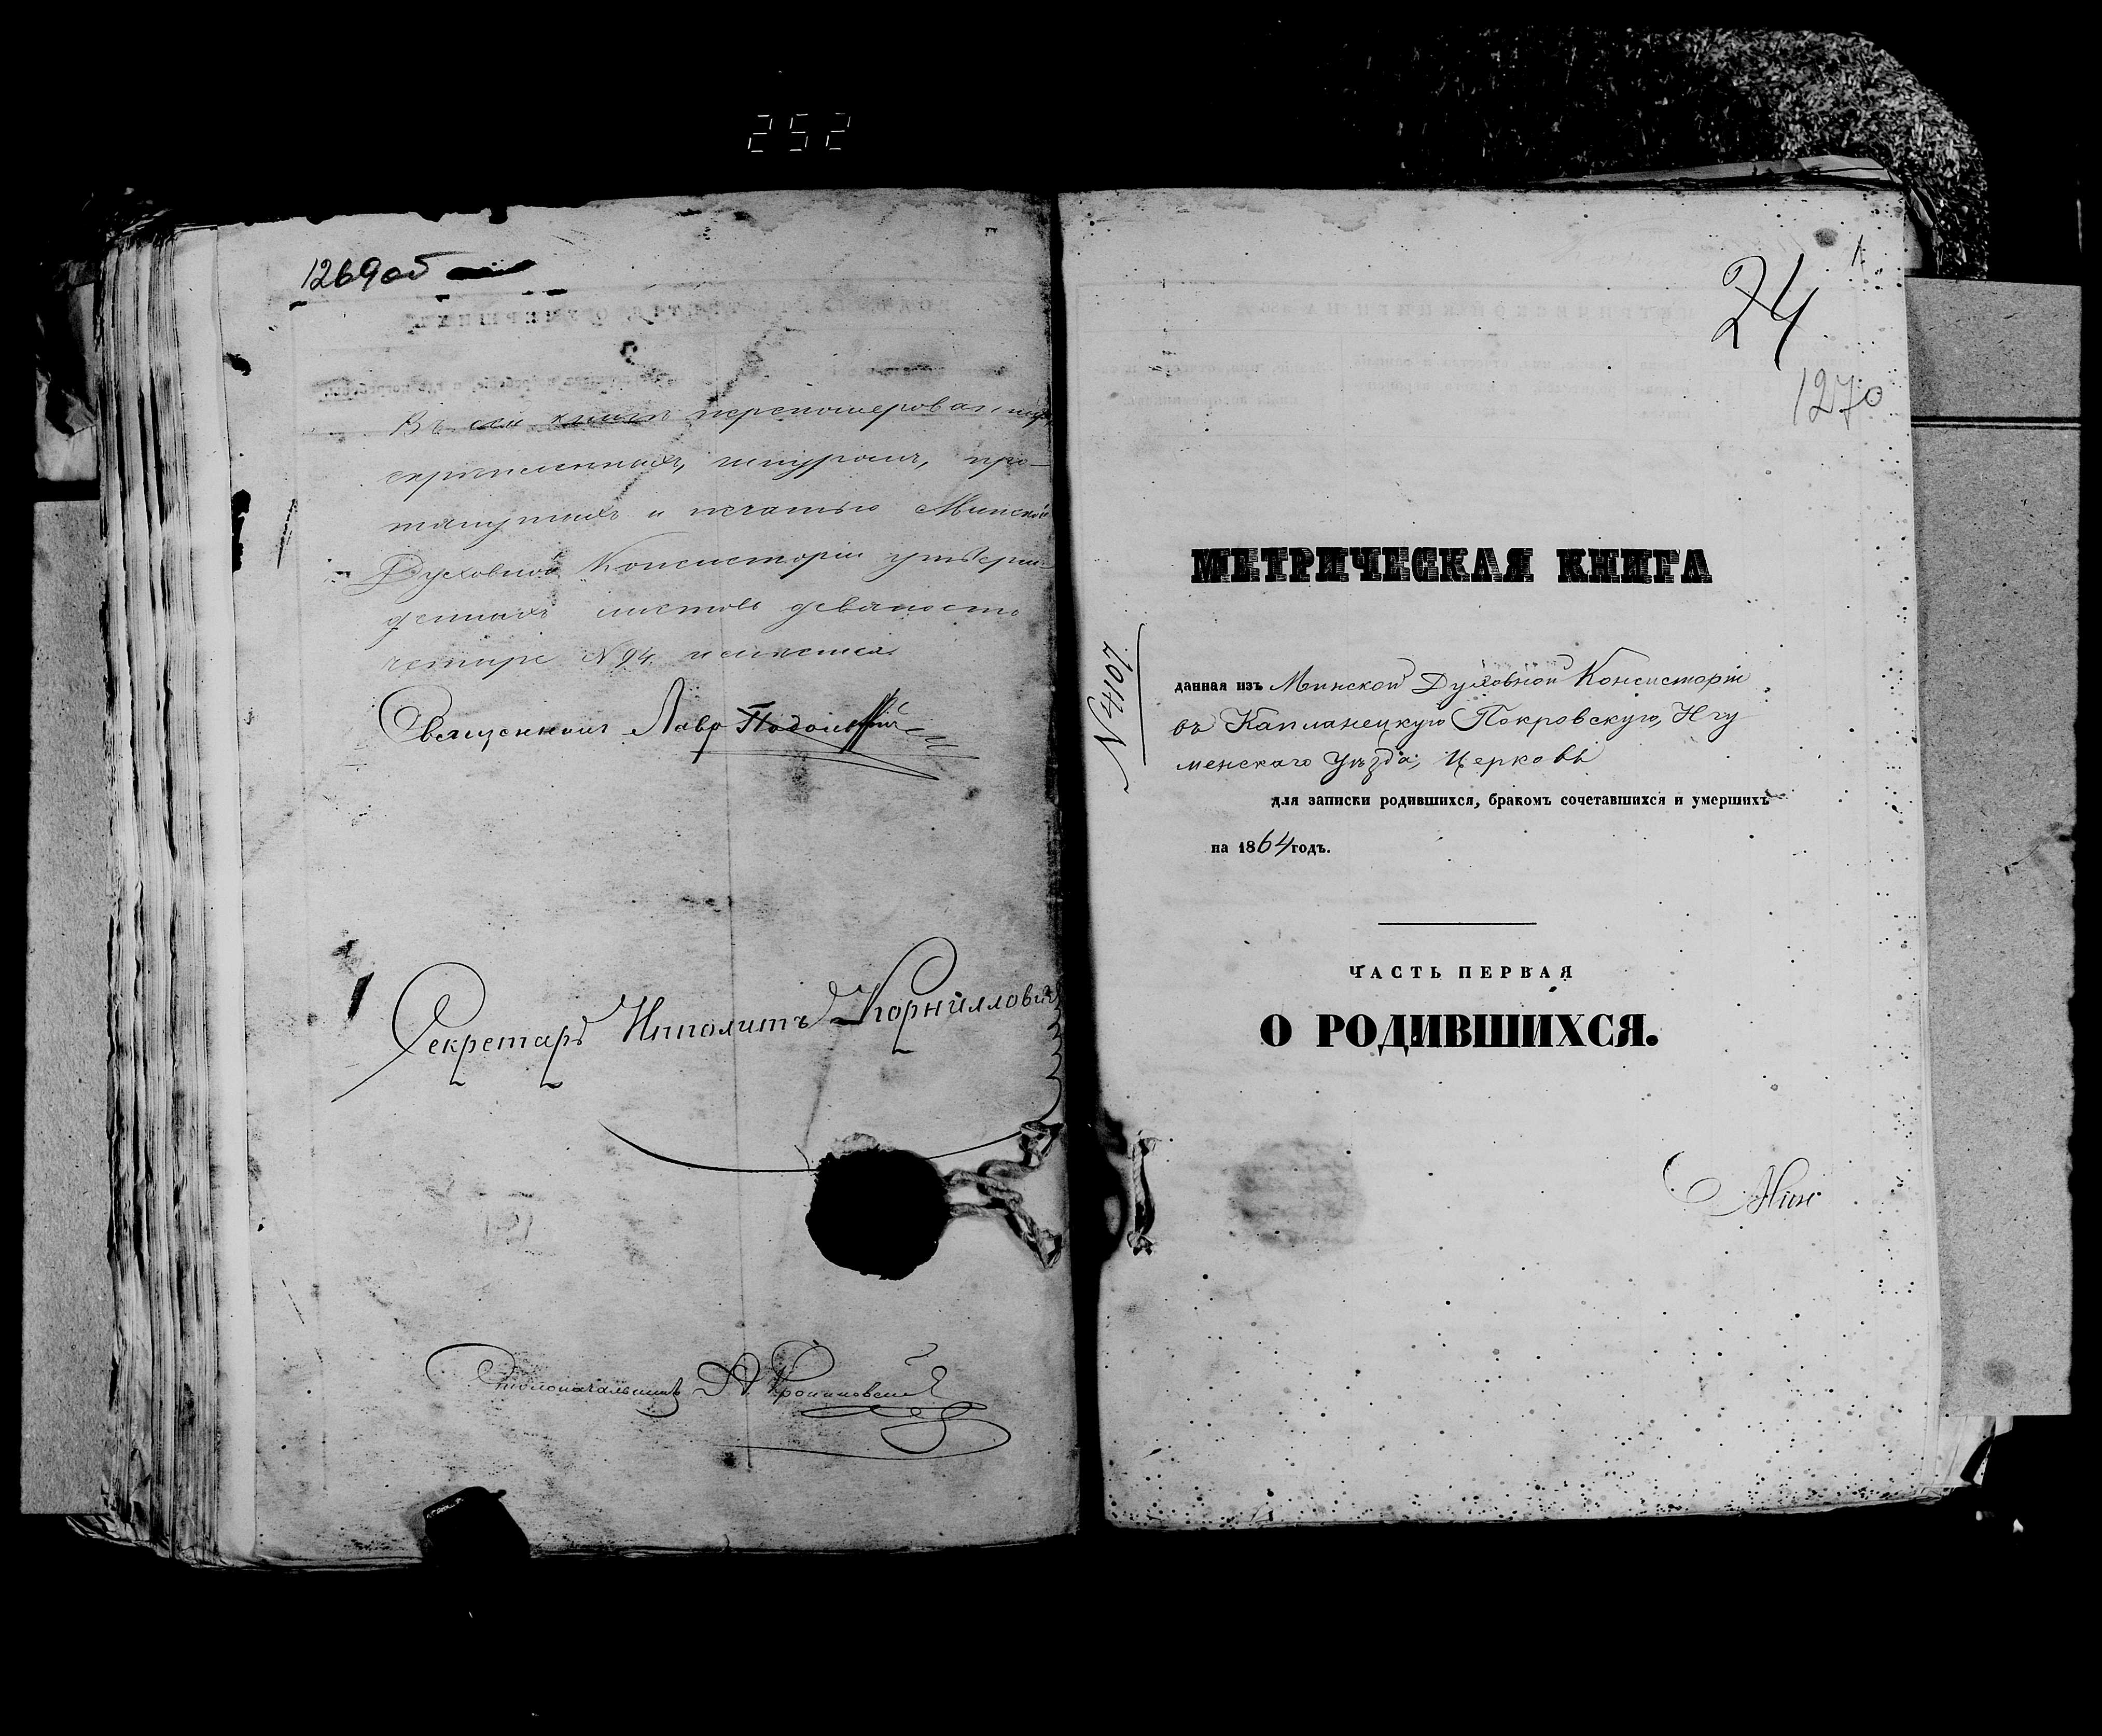 252
1269об
Въ сей книгѣ перенумерованныхъ,
скрѣпленныхъ, шнуромъ, про-
тянутыхъ и печатью Минской
Духовной Консисторіи утверж-
денныхъ листовъ девяносто
четыре N 94.
Священникъ Лавр
Секретарь Ипполитъ Корниллович
Столоначальникъ А.
1
24
1270
МЕТРИЧЕСКАЯ КНИГА
N 4107.
данная изъ Минской Духовной Консисторіи
въ Капланецкую Покровскую, Игу
менскаго Уѣзда, Церковь
для записки родившихся, бракомъ сочетавшихся и умершихъ
на 1864 годъ.
ЧАСТЬ ПЕРВАЯ
О РОДИВШИХСЯ.